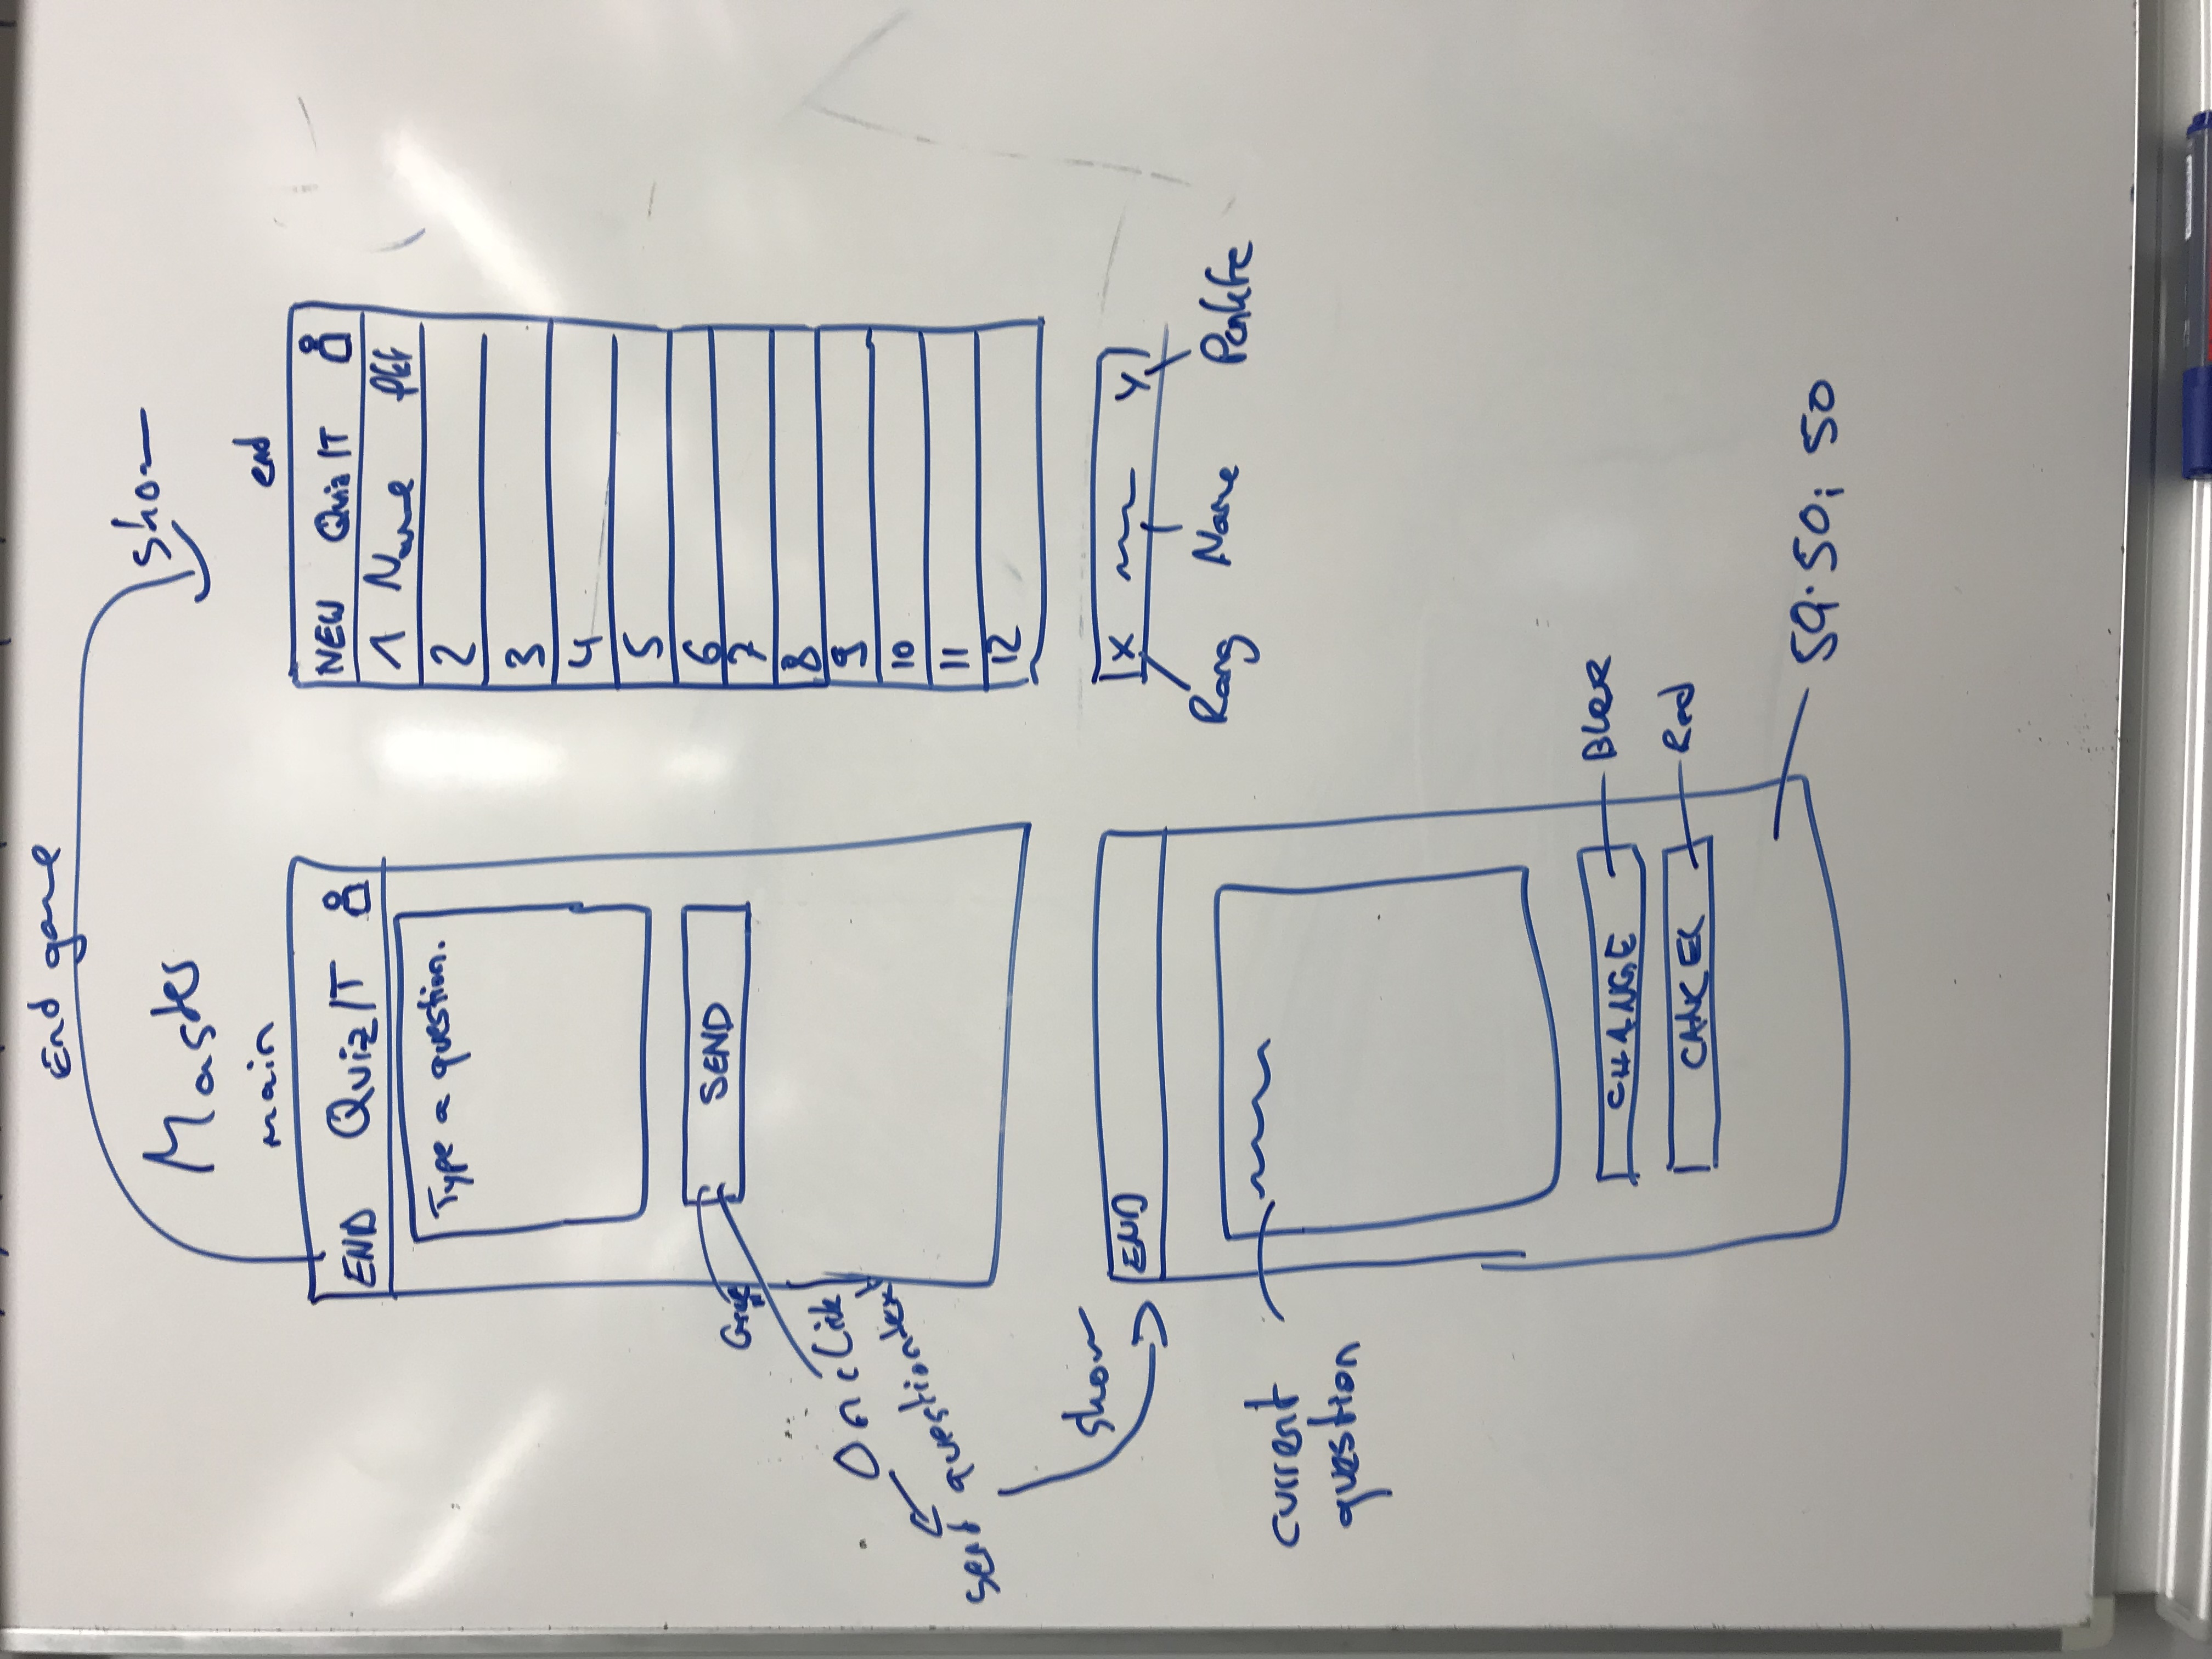 End game
show
Master
main
END QuizIT
Type a question.
SEND
Onclick
send questiontext
show
END
current
question
CHANGE
CANCEL
Red
end
NEW QuizIT
1 Name Pkt
2
3
4
5
6
7
8
9
10
11
12
X Y
Rang Name Punkte